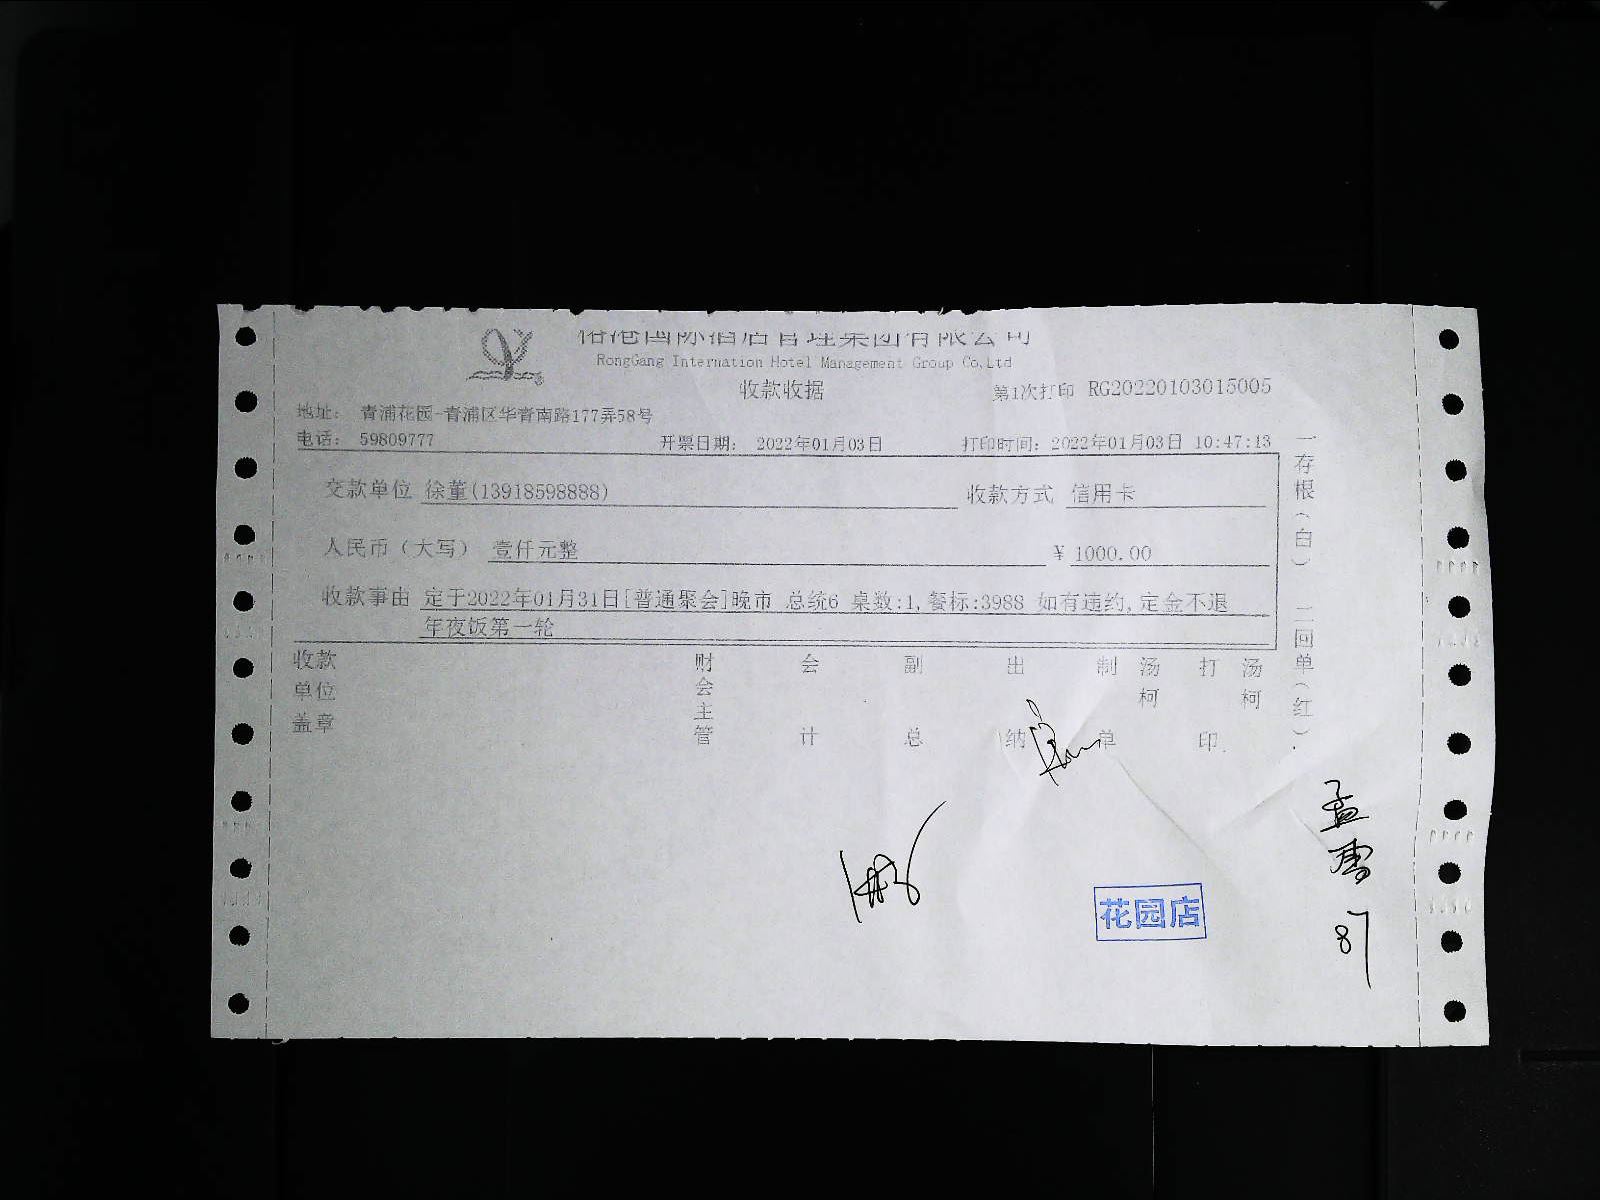 港国际酒店管理集团有限公司
RongGang Internation Hotel Management Group Co,Ltd
收款收据 第1次打印 RG20220103015005
地址： 青浦花园-青浦区华青南路177弄58号
电话： 59809777 开票日期： 2022年01月03日 打印时间：2022年01月03日 10:47:13
交款单位 徐董(13918598888) 收款方式 信用卡
人民币（大写） 壹仟元整 ¥ 1000.00
收款事由 定于2022年01月31日[普通聚会]晚市 总统6 桌数:1,餐标:3988 如有违约,定金不退
年夜饭第一轮
收款单位盖章 财会主管 会计 副总 出纳 制单 汤柯 打印 汤柯
一存根（白） 二回单（红）
孟雪
87
花园店